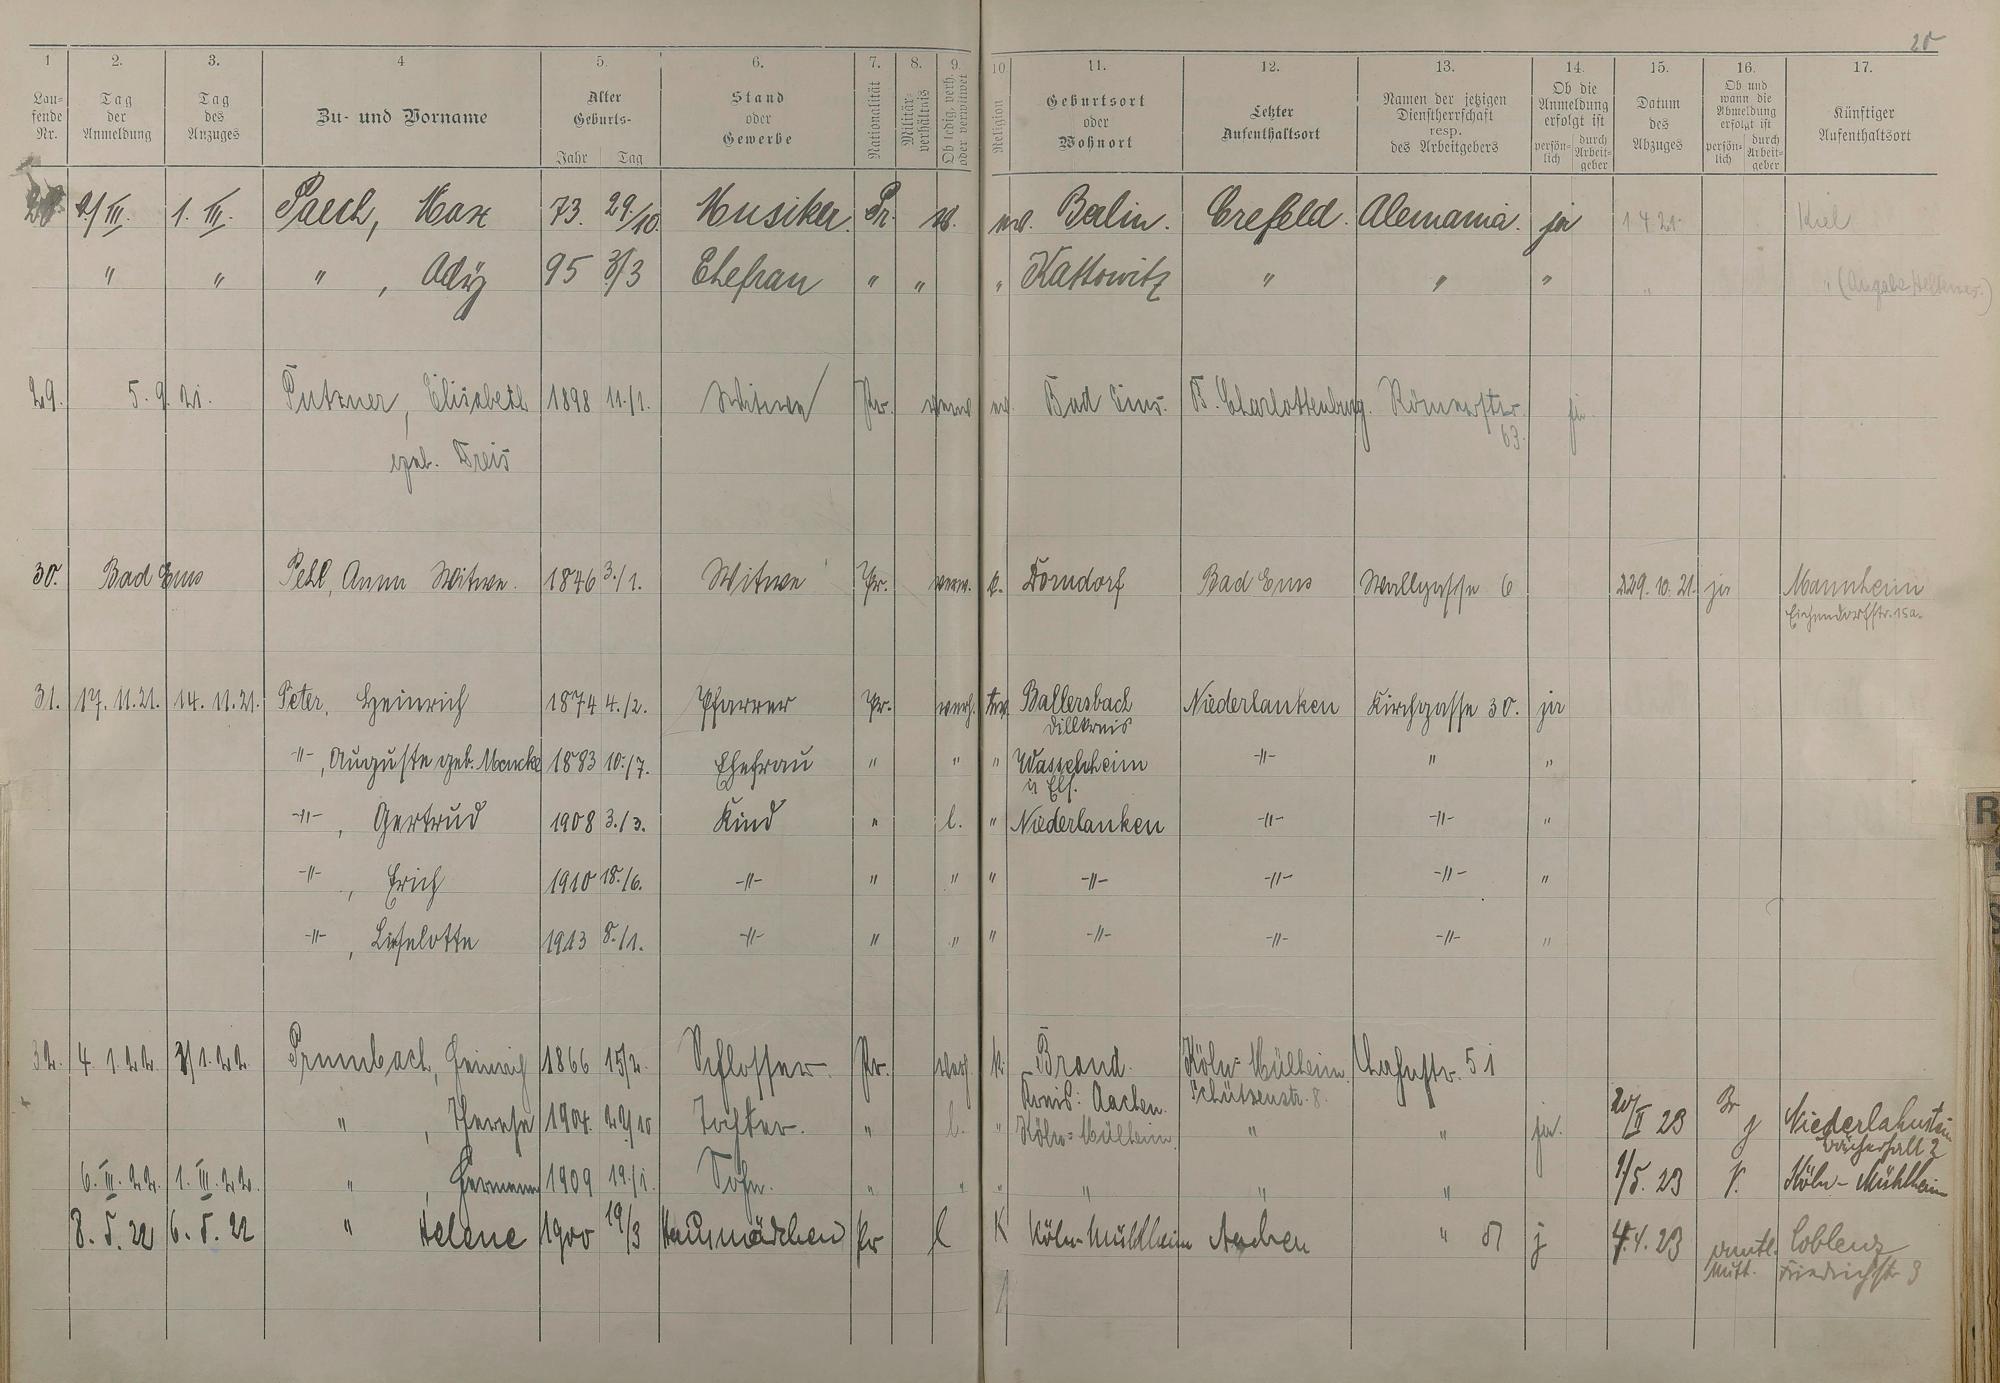 20
1 2. 3. 4 5. 6. 7. 8. 9. 10 11. 12. 13. 14. 15. 16. 17.
Lau-
fende
Nr.
Tag
der
Anmeldung
Tag
des
Anzuges
Zu- und Vorname
Alter
Geburts-
Jahr Tag
Stand
oder
Gewerbe
Nationalität
Militär-
verhältnis
Ob ledig, verh.
oder verwitwet
Religion
Geburtsort
oder
Wohnort
Letzter
Aufenthaltsort
Namen der jetzigen
Dienstherrschaft
resp.
des Arbeitgebers
Ob die
Anmeldung
erfolgt ist
persön-
lich
durch
Arbeit-
geber
Datum
des
Abzuges
Ob und
wann die
Abmeldung
erfolgt ist
persön-
lich
durch
Arbeit-
geber
Künftiger
Aufenthaltsort
28 2/III. 1. III. Paech, Max 73. 29/10. Musiker. Pr. w. ev. Berlin. Crefeld. Alemania. ja 1 4 21. Kiel
" " " , Ady 95 3/3 Ehefrau " " " Kattowitz " " " " "
29. 5. 9. 21. Putzner, Elisabeth 1898 11./1. Witwe Pr. verw. ev. Bad Ems. B. Charlottenburg. Römerstr. ja
63.
geb. Dreis
30. Bad Ems Pehl, Anna Witwe. 1846 3./1. Witwe Pr. verw. k. Dorndorf Bad Ems Wallgasse 6 29. 10. 21. ja Mannheim
Eichendorffstr. 15a.
31. 17. 11. 21. 14. 11. 21. Peter, Heinrich 1874 4./2. Pfarrer Pr. verh. ev. Ballersbach Niederlanken Kirchgasse 30. ja
Dillkreis
-"-, Auguste geb. Mencke 1883 10./7. Ehefrau " " " Wasselnheim -"- " "
i Els.
-"- , Gertrud 1908 3./3. Kind " l. " Niederlanken -"- -"- "
-"- , Erich 1910 18./6. -"- " " " -"- -"- -"- "
-"- , Liselotte 1913 8./1. -"- " " " -"- -"- -"- "
32. 4. 1. 22. 3/1. 22 Prumbach, Heinrich 1866 15/2. Schlosser. Pr. verh. k. Brand. Köln-Mülheim. Lahnstr. 51
Kreis: Aachen. Schützenstr. 8.
" , Therese 1904. 29/10 Tochter. " l. " Köln-Mülheim " " ja. 20/II 23 j Niederlahnstein
6. III. 22. 1. III. 22. " , Hermann 1909 19./1. Sohn. " " " " " " 1/5. 23 Köln-Mühlheim
8. 5. 22 6. 5. 22 " Helene 1900 19/3 Hausmädchen Pr l K Köln-Mühlheim Aachen " 51 j 4. 4. 23 amtl. Coblenz
Mitt. Friedrichstr 3
R